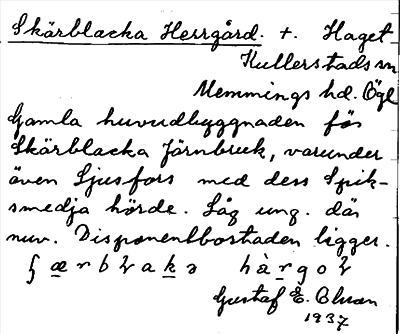 Skärblacka Herrgård. +. Haget
Kullerstads sn
Memmings hd. Ögl
Gamla huvudbyggnaden för
Skärblacka Järnbruk, varunder
även Ljusfors med dess Spik-
smedja hörde. Låg ung. där
nuv. Disponentbostaden ligger.
Gustaf E. Olsson
1937